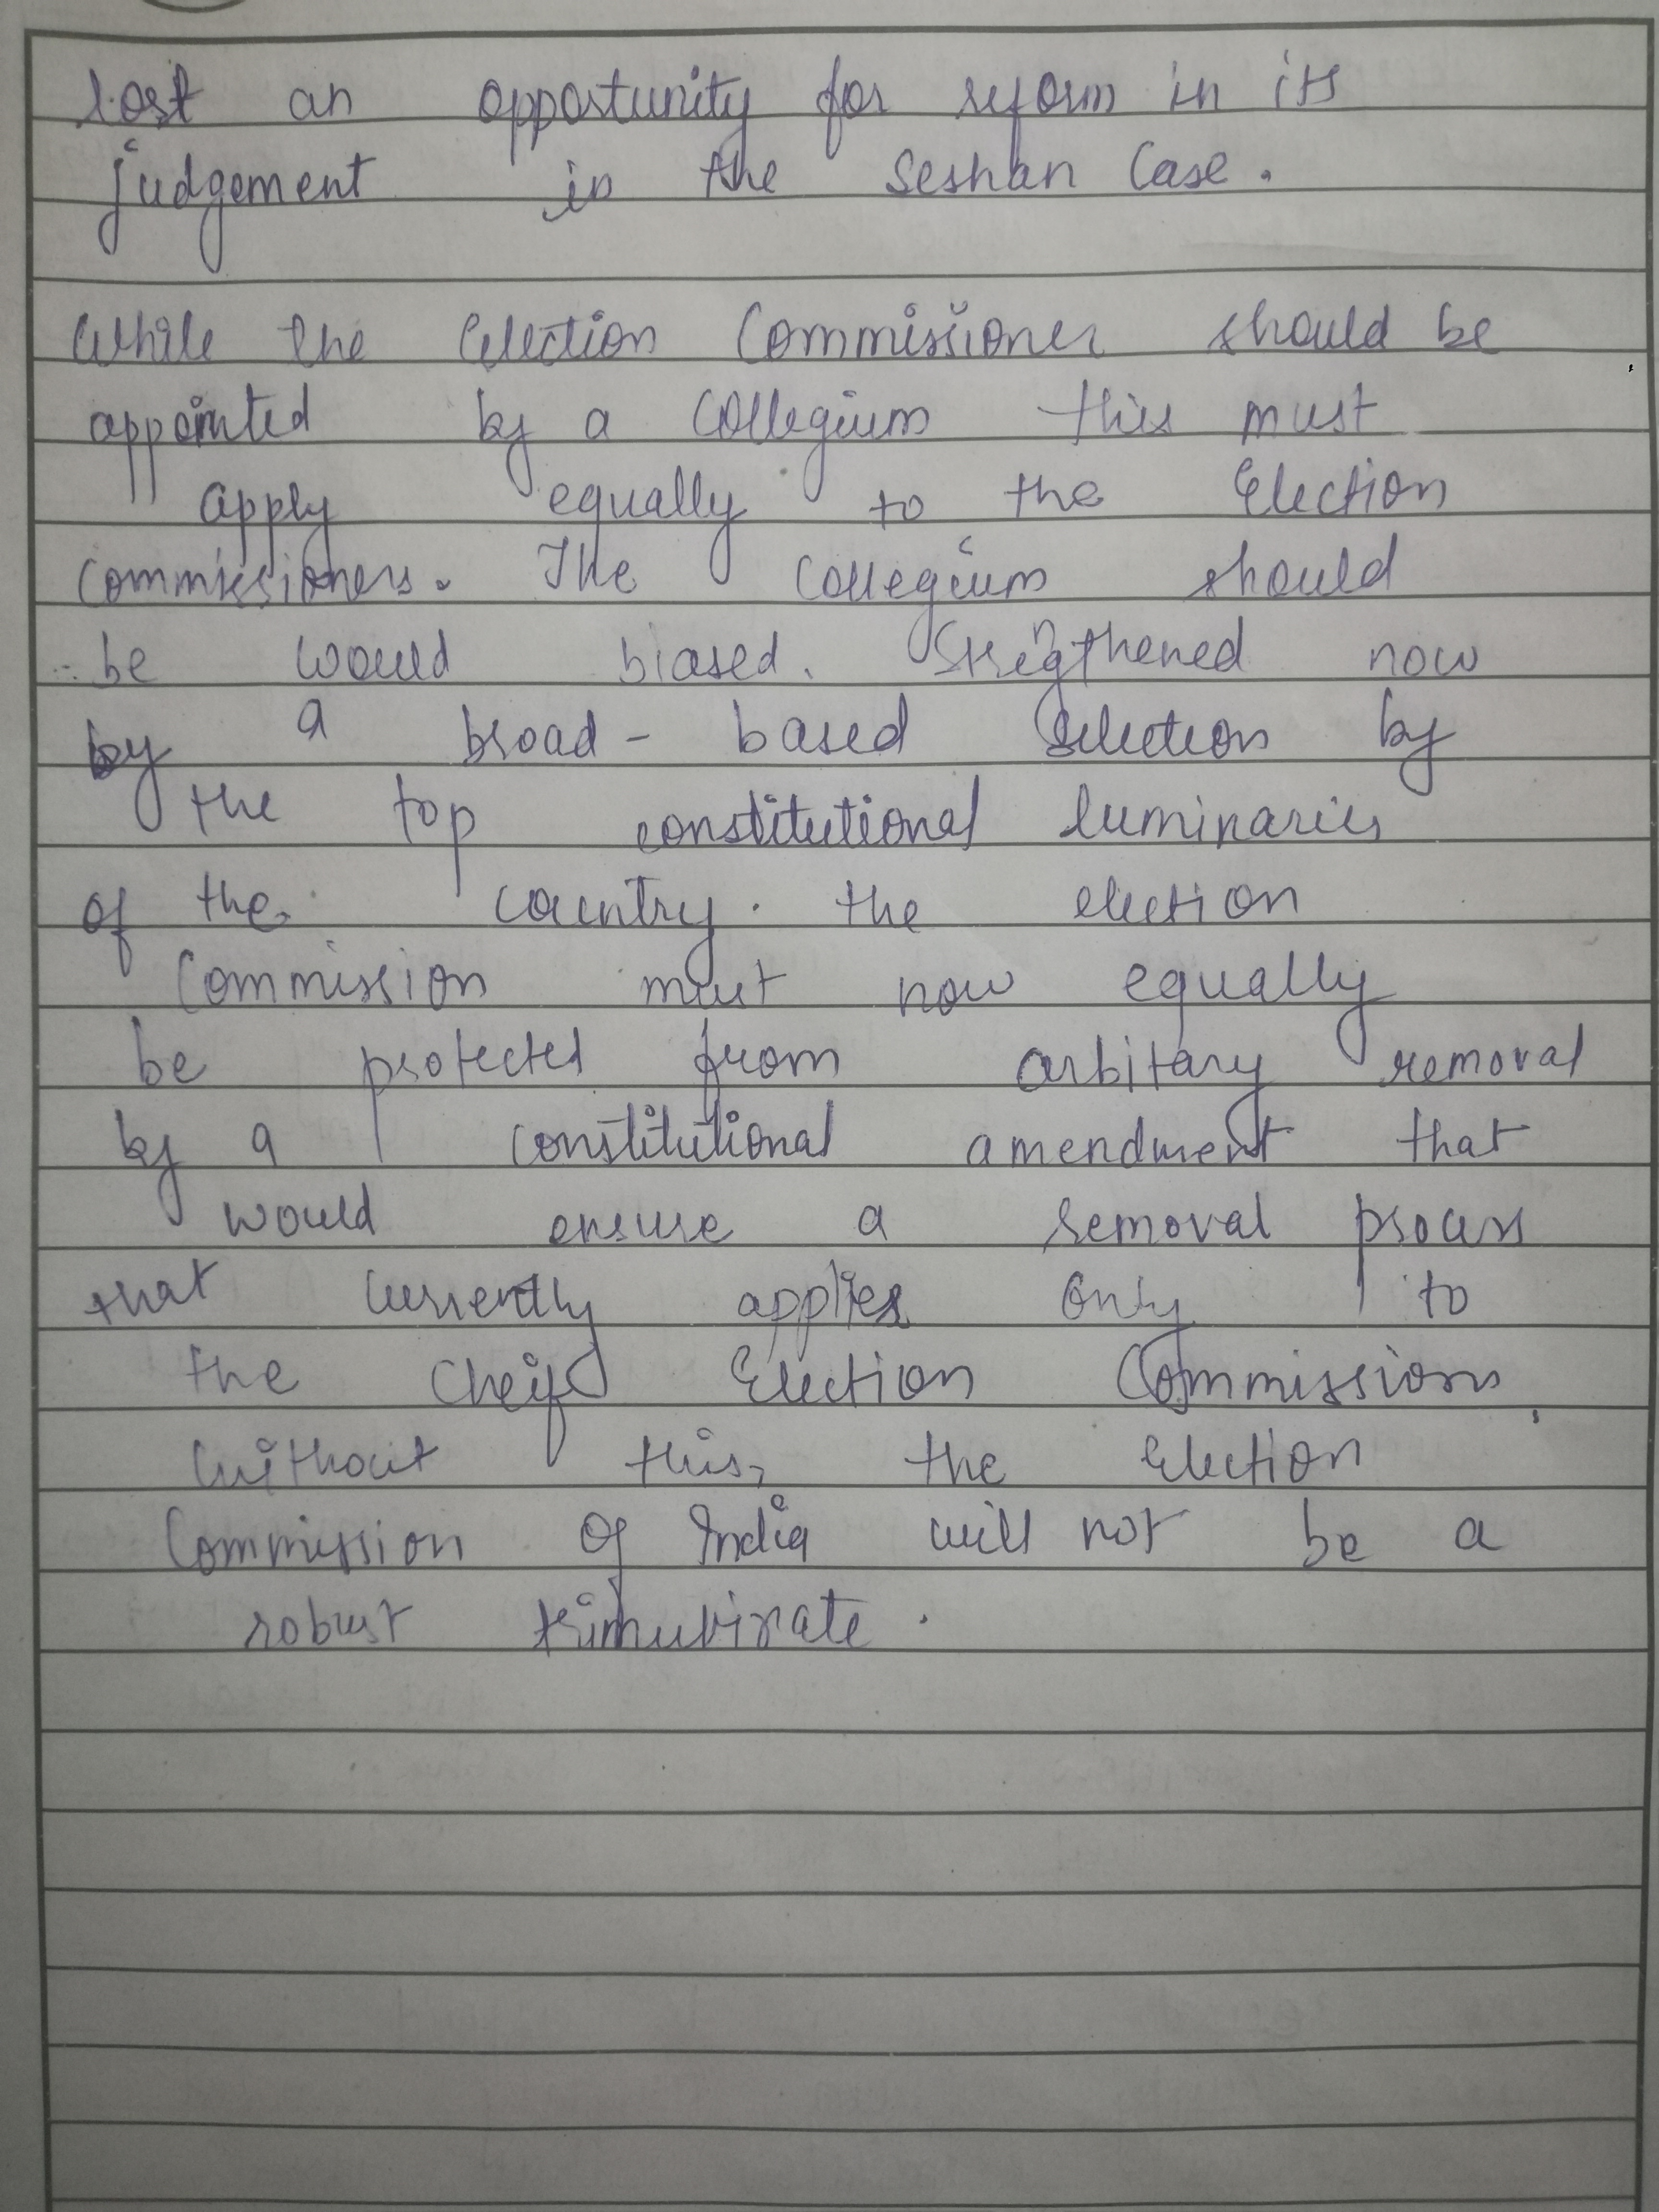 lost an opportunity for reform in its
judgement in the Seshan Case.
While the Election Commissioner should be
appointed by a collegium this must
apply equally to the Election
commissioners. The collegium should
be would biased. Stregthened now
by a broad - based selection by
the top constitutional luminaries
of the country. the election
Commission must now equally
be protected from arbitary removal
by a constitutional amendment that
would ensure a removal process
that currently applies only to
the Cheif Election Commissions
without this, the Election
Commission Of India will not be a
robust trimuvirate.